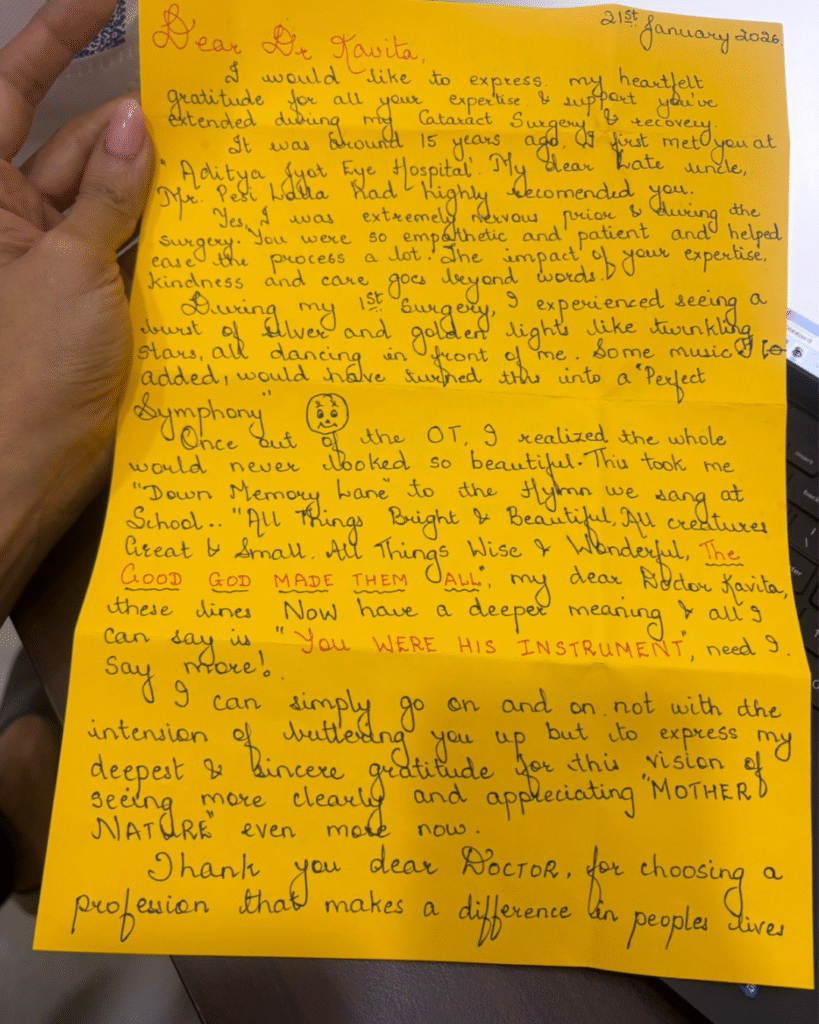 21st January 2026
Dear Dr Kavita,
I would like to express my heartfelt
gratitude for all your expertise & support you've
extended during my Cataract Surgery & recovery.
It was around 15 years ago, I first met you at
"Aditya Jyot Eye Hospital'. My dear Late uncle,
Mr. Pesi Lalla had highly recomended you.
Yes, I was extremely nervous prior & during the
surgery. You were so empathetic and patient and helped
ease the process a lot. The impact of your expertise,
kindness and care goes beyond words.
During my 1st Surgery, I experienced seeing a
burst of silver and golden lights like twinkling
stars, all dancing in front of me. Some music
added, would have turned this into a "Perfect
Symphony"
Once out of the OT, I realized the whole
world never looked so beautiful. This took me
"Down Memory Lane" to the Hymn we sang at
School.. "All Things Bright & Beautiful, All creatures
Great & Small. All Things Wise & Wonderful, The
GOOD GOD MADE THEM ALL", my dear Doctor Kavita,
these lines Now have a deeper meaning & all I
can say is "You WERE HIS INSTRUMENT", need I
say more!
I can simply go on and on not with the
intension of buttering you up but to express my
deepest & sincere gratitude for this vision of
seeing more clearly and appreciating "MOTHER
NATURE" even more now.
Thank you dear DOCTOR, for choosing a
profession that makes a difference in peoples lives